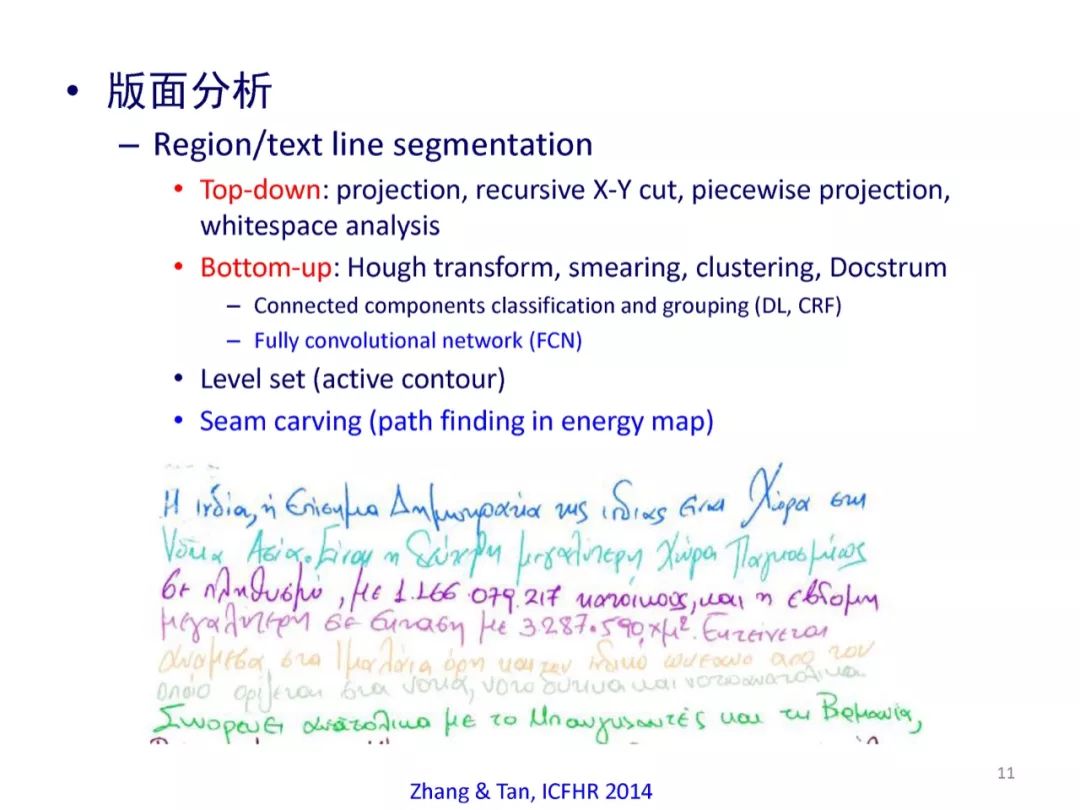 • 版面分析
– Region/text line segmentation
• Top-down: projection, recursive X-Y cut, piecewise projection,
whitespace analysis
• Bottom-up: Hough transform, smearing, clustering, Docstrum
– Connected components classification and grouping (DL, CRF)
– Fully convolutional network (FCN)
• Level set (active contour)
• Seam carving (path finding in energy map)
Η ινδία, ή Επίσημα Δημοκρατία της ινδίας είναι χώρα στη
Νότια Ασία. Είναι η δεύτερη μεγαλύτερη χώρα Παγκοσμίως
σε πληθυσμό, με 1.166.079.217 κατοίκους, και η έβδομη
μεγαλύτερη σε έκταση με 3.287.590 χμ². Εκτείνεται
ανάμεσα, στα Ιμαλάια όρη και τον ινδικό ωκεανο απο τον
οποίο ορίζεται στα νοτια, νοτιοδυτικα και νοτιοανατολικα.
Συνορευει ανατολικα με το Μπαγκλαντές και τη Βιρμανία,
11
Zhang & Tan, ICFHR 2014